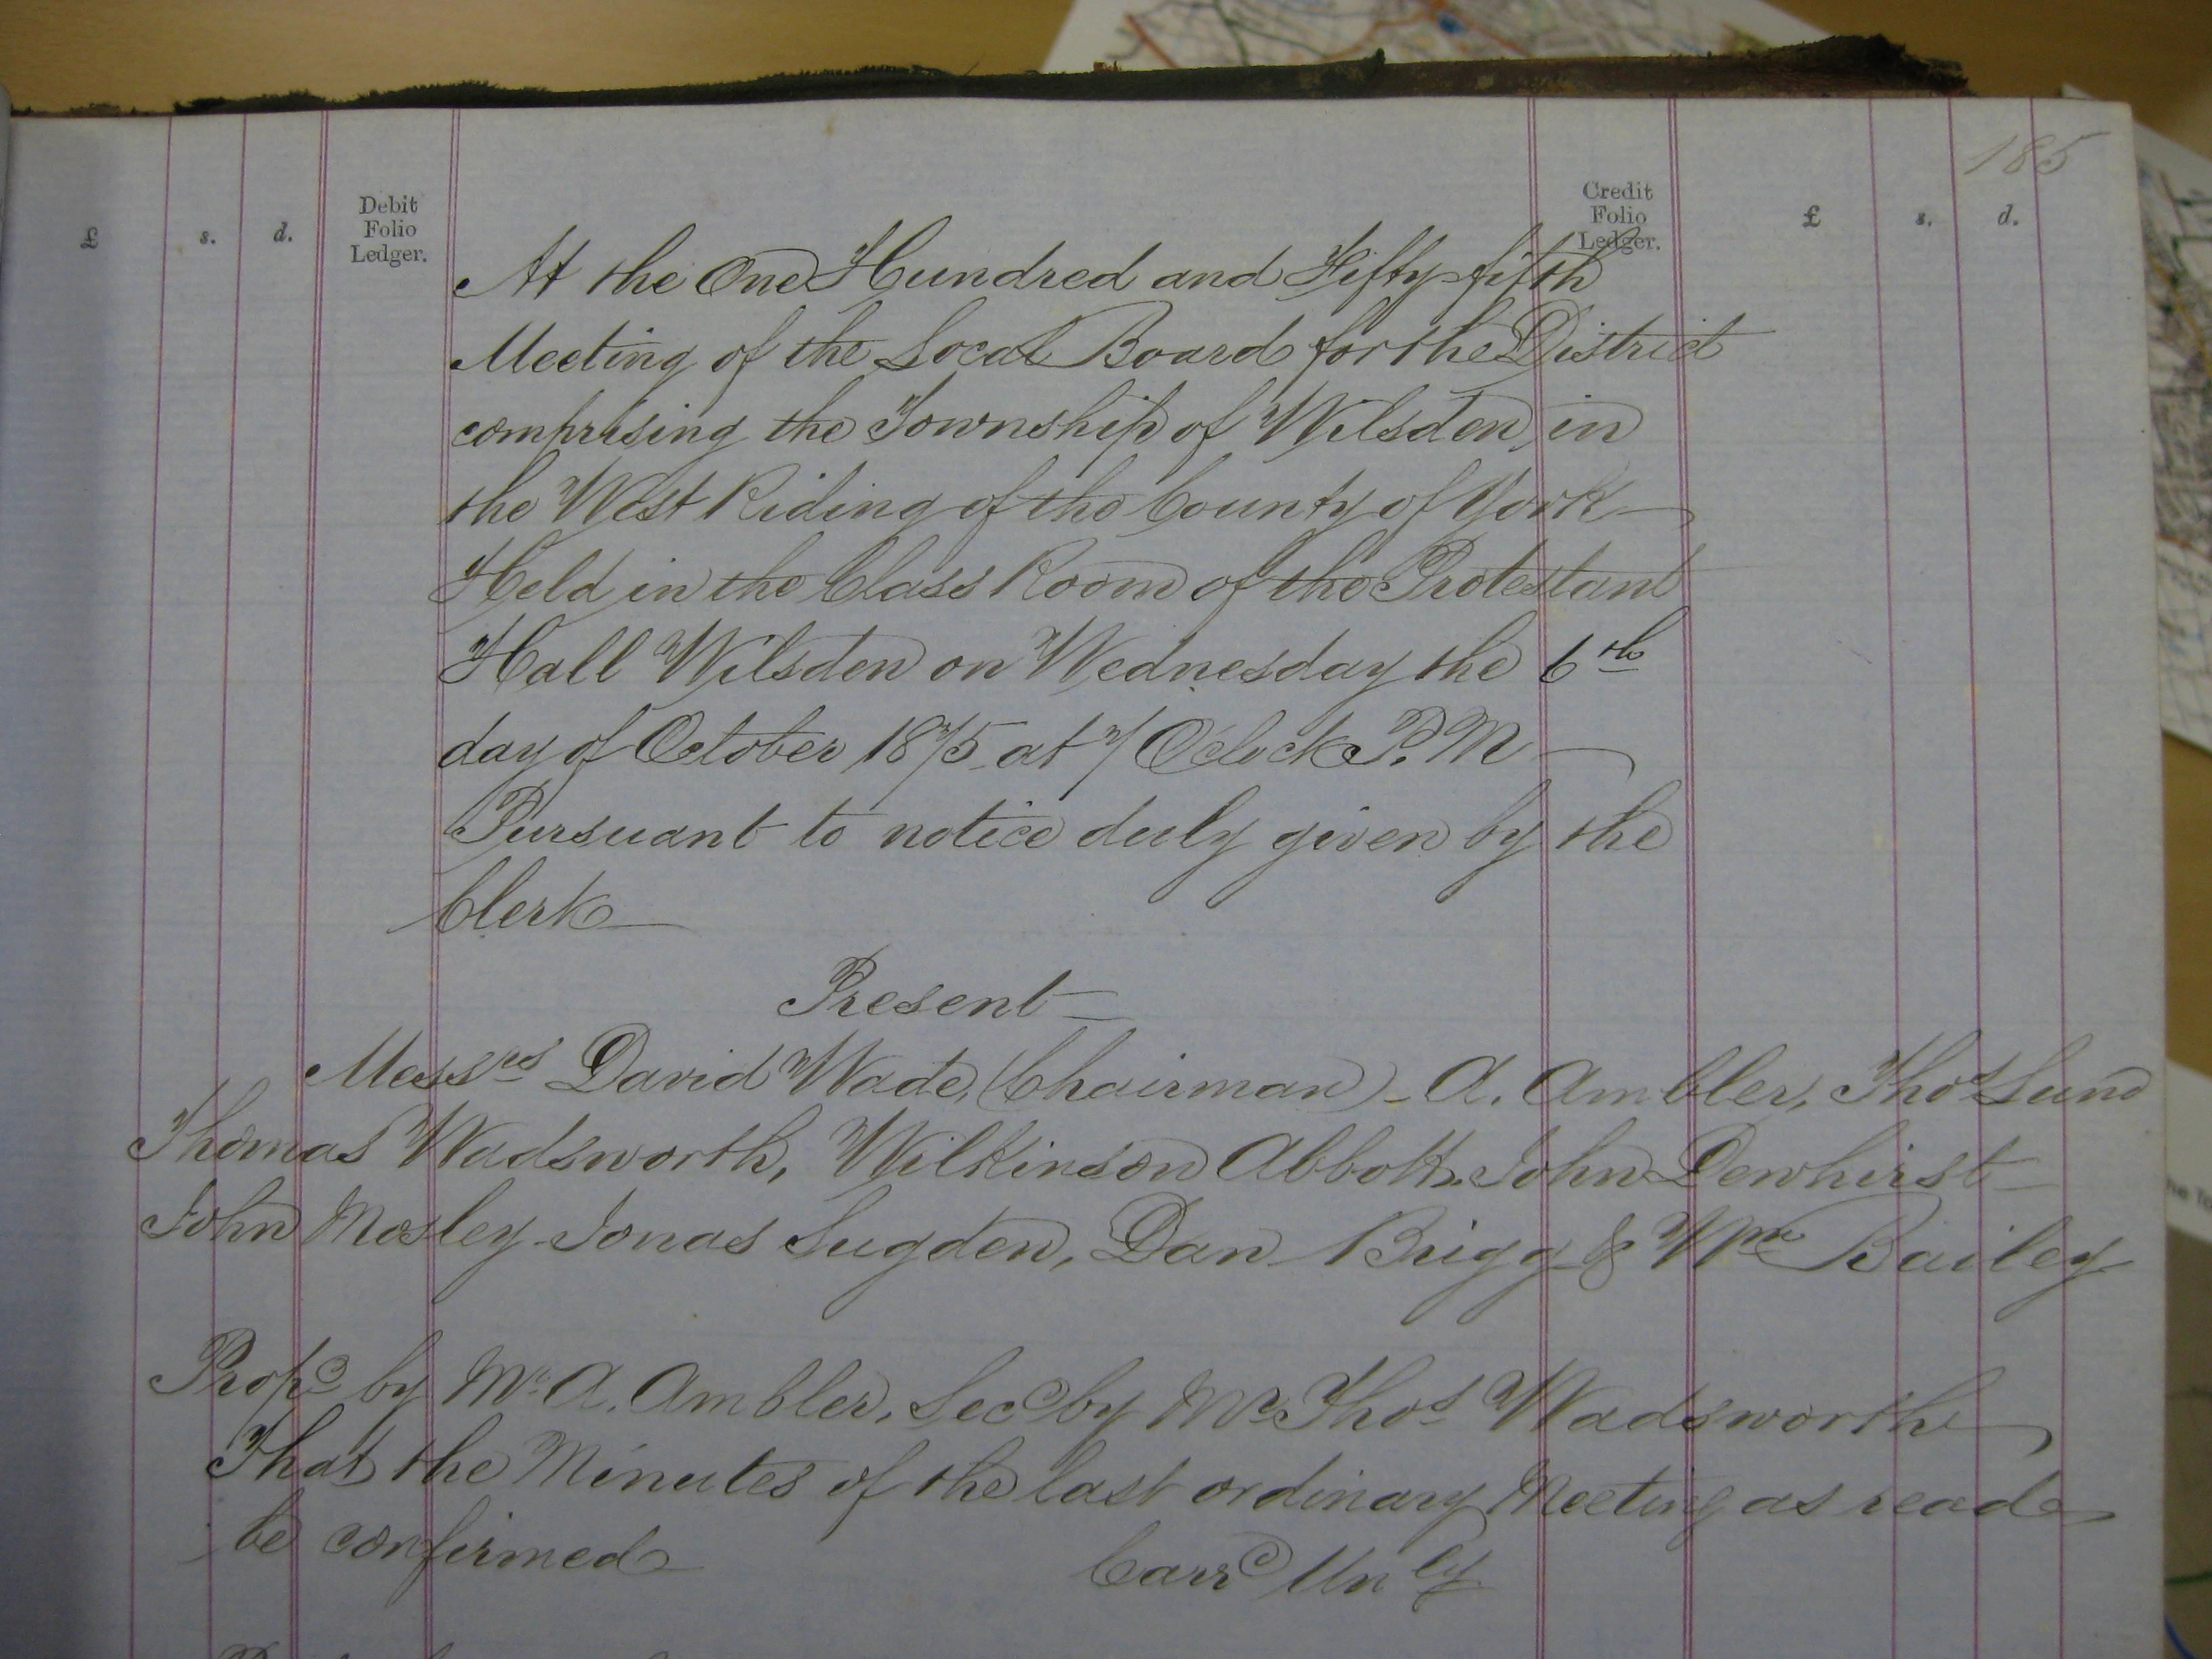 185
£ s. d. Debit Folio Ledger. Credit Folio Ledger. £ s. d.
At the One Hundred and Fifty-fifth
Meeting of the Local Board for the District
comprising the Township of Wilsden in
the West Riding of the County of York
Held in the Class Room of the Protestant
Hall Wilsden on Wednesday the 6th
day of October 1875 at 7 O'clock P.M
Pursuant to notice duly given by the
Clerk
Present
Messrs David Wade, (Chairman) - A. Ambler, Thos Lund
Thomas Wadsworth, Wilkinson Abbott, John Dewhirst
John Mosley Jonas Sugden, Dan Brigg & Wm Bailey
Propd by Mr A. Ambler, Secd by Mr Thos Wadsworth
That the Minutes of the last ordinary Meeting as read
be confirmed Carrd Unly